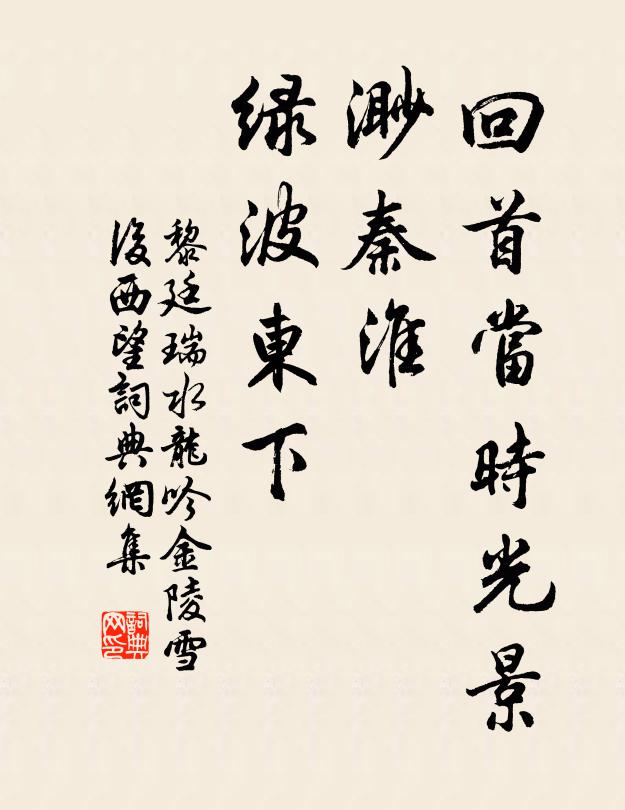 回首當時光景
渺秦淮
绿波東下
黎廷瑞水龍吟金陵雪
後西望詞典網集
詞典网印